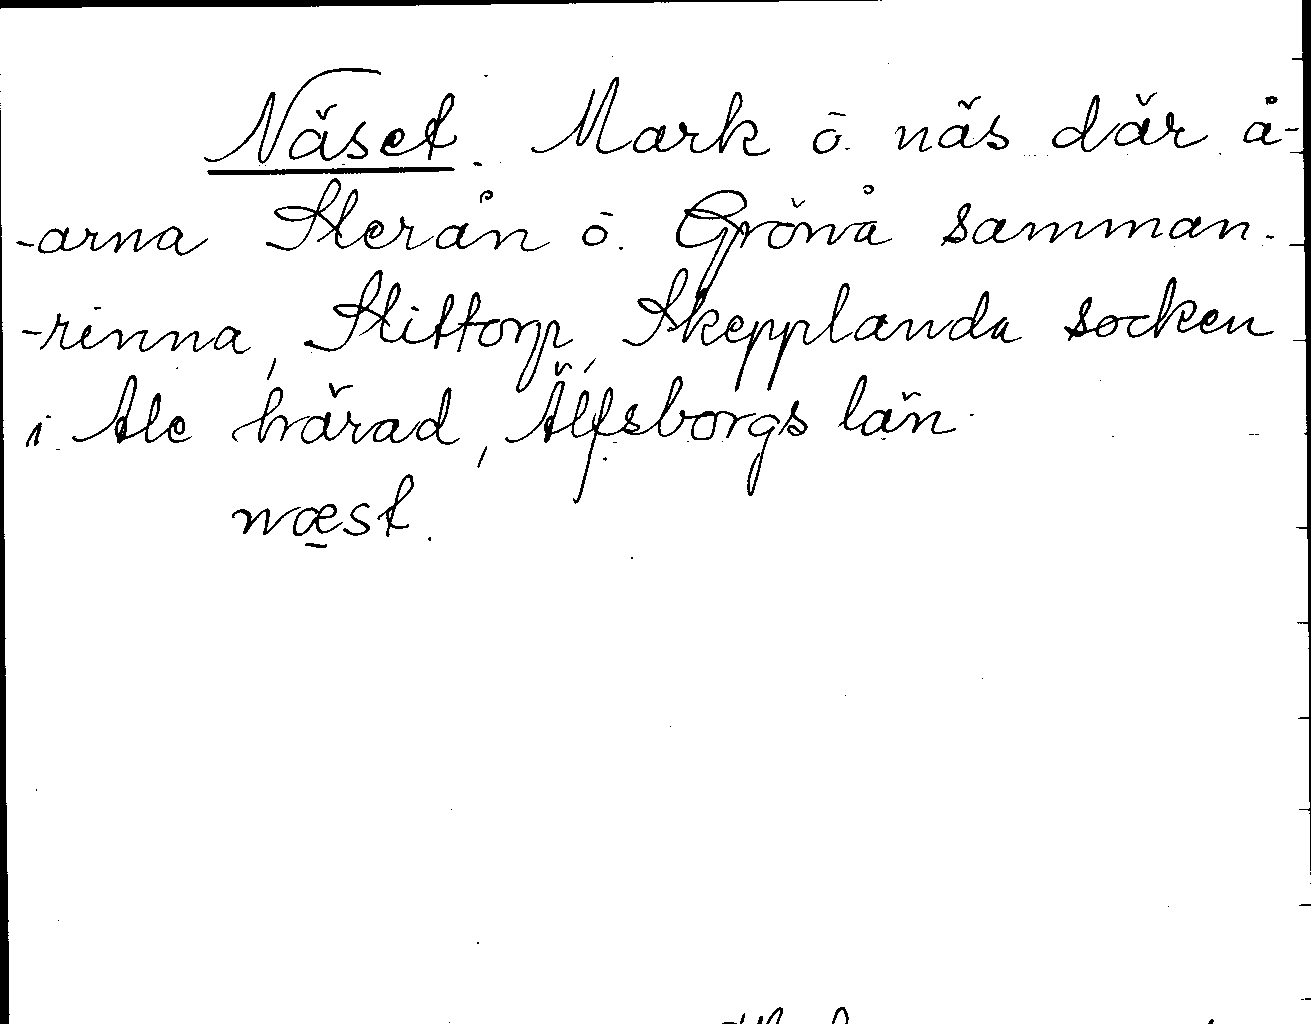 Näset. Mark ō. näs där å-
-arna Sterån ō. Grönå samman-
-rinna, Slittorp, Skepplanda socken
i Ale härad, Älfsborgs län.
næst.